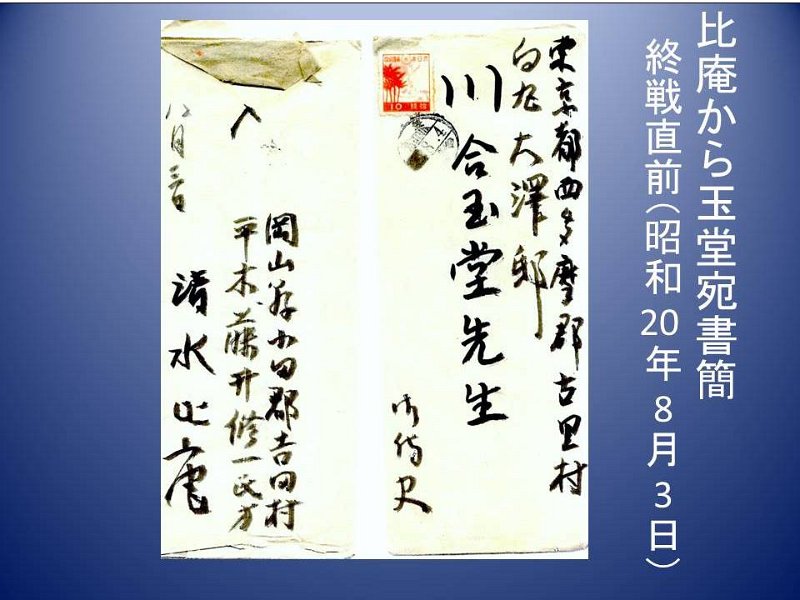 比庵から玉堂宛書簡
終戦直前（昭和20年8月3日）
東京都西多摩郡古里村
白丸大澤邸
川合玉堂先生
御侍史
10
八月三日
岡山県小田郡吉田村
平木、藤井修一氏方
清水比庵